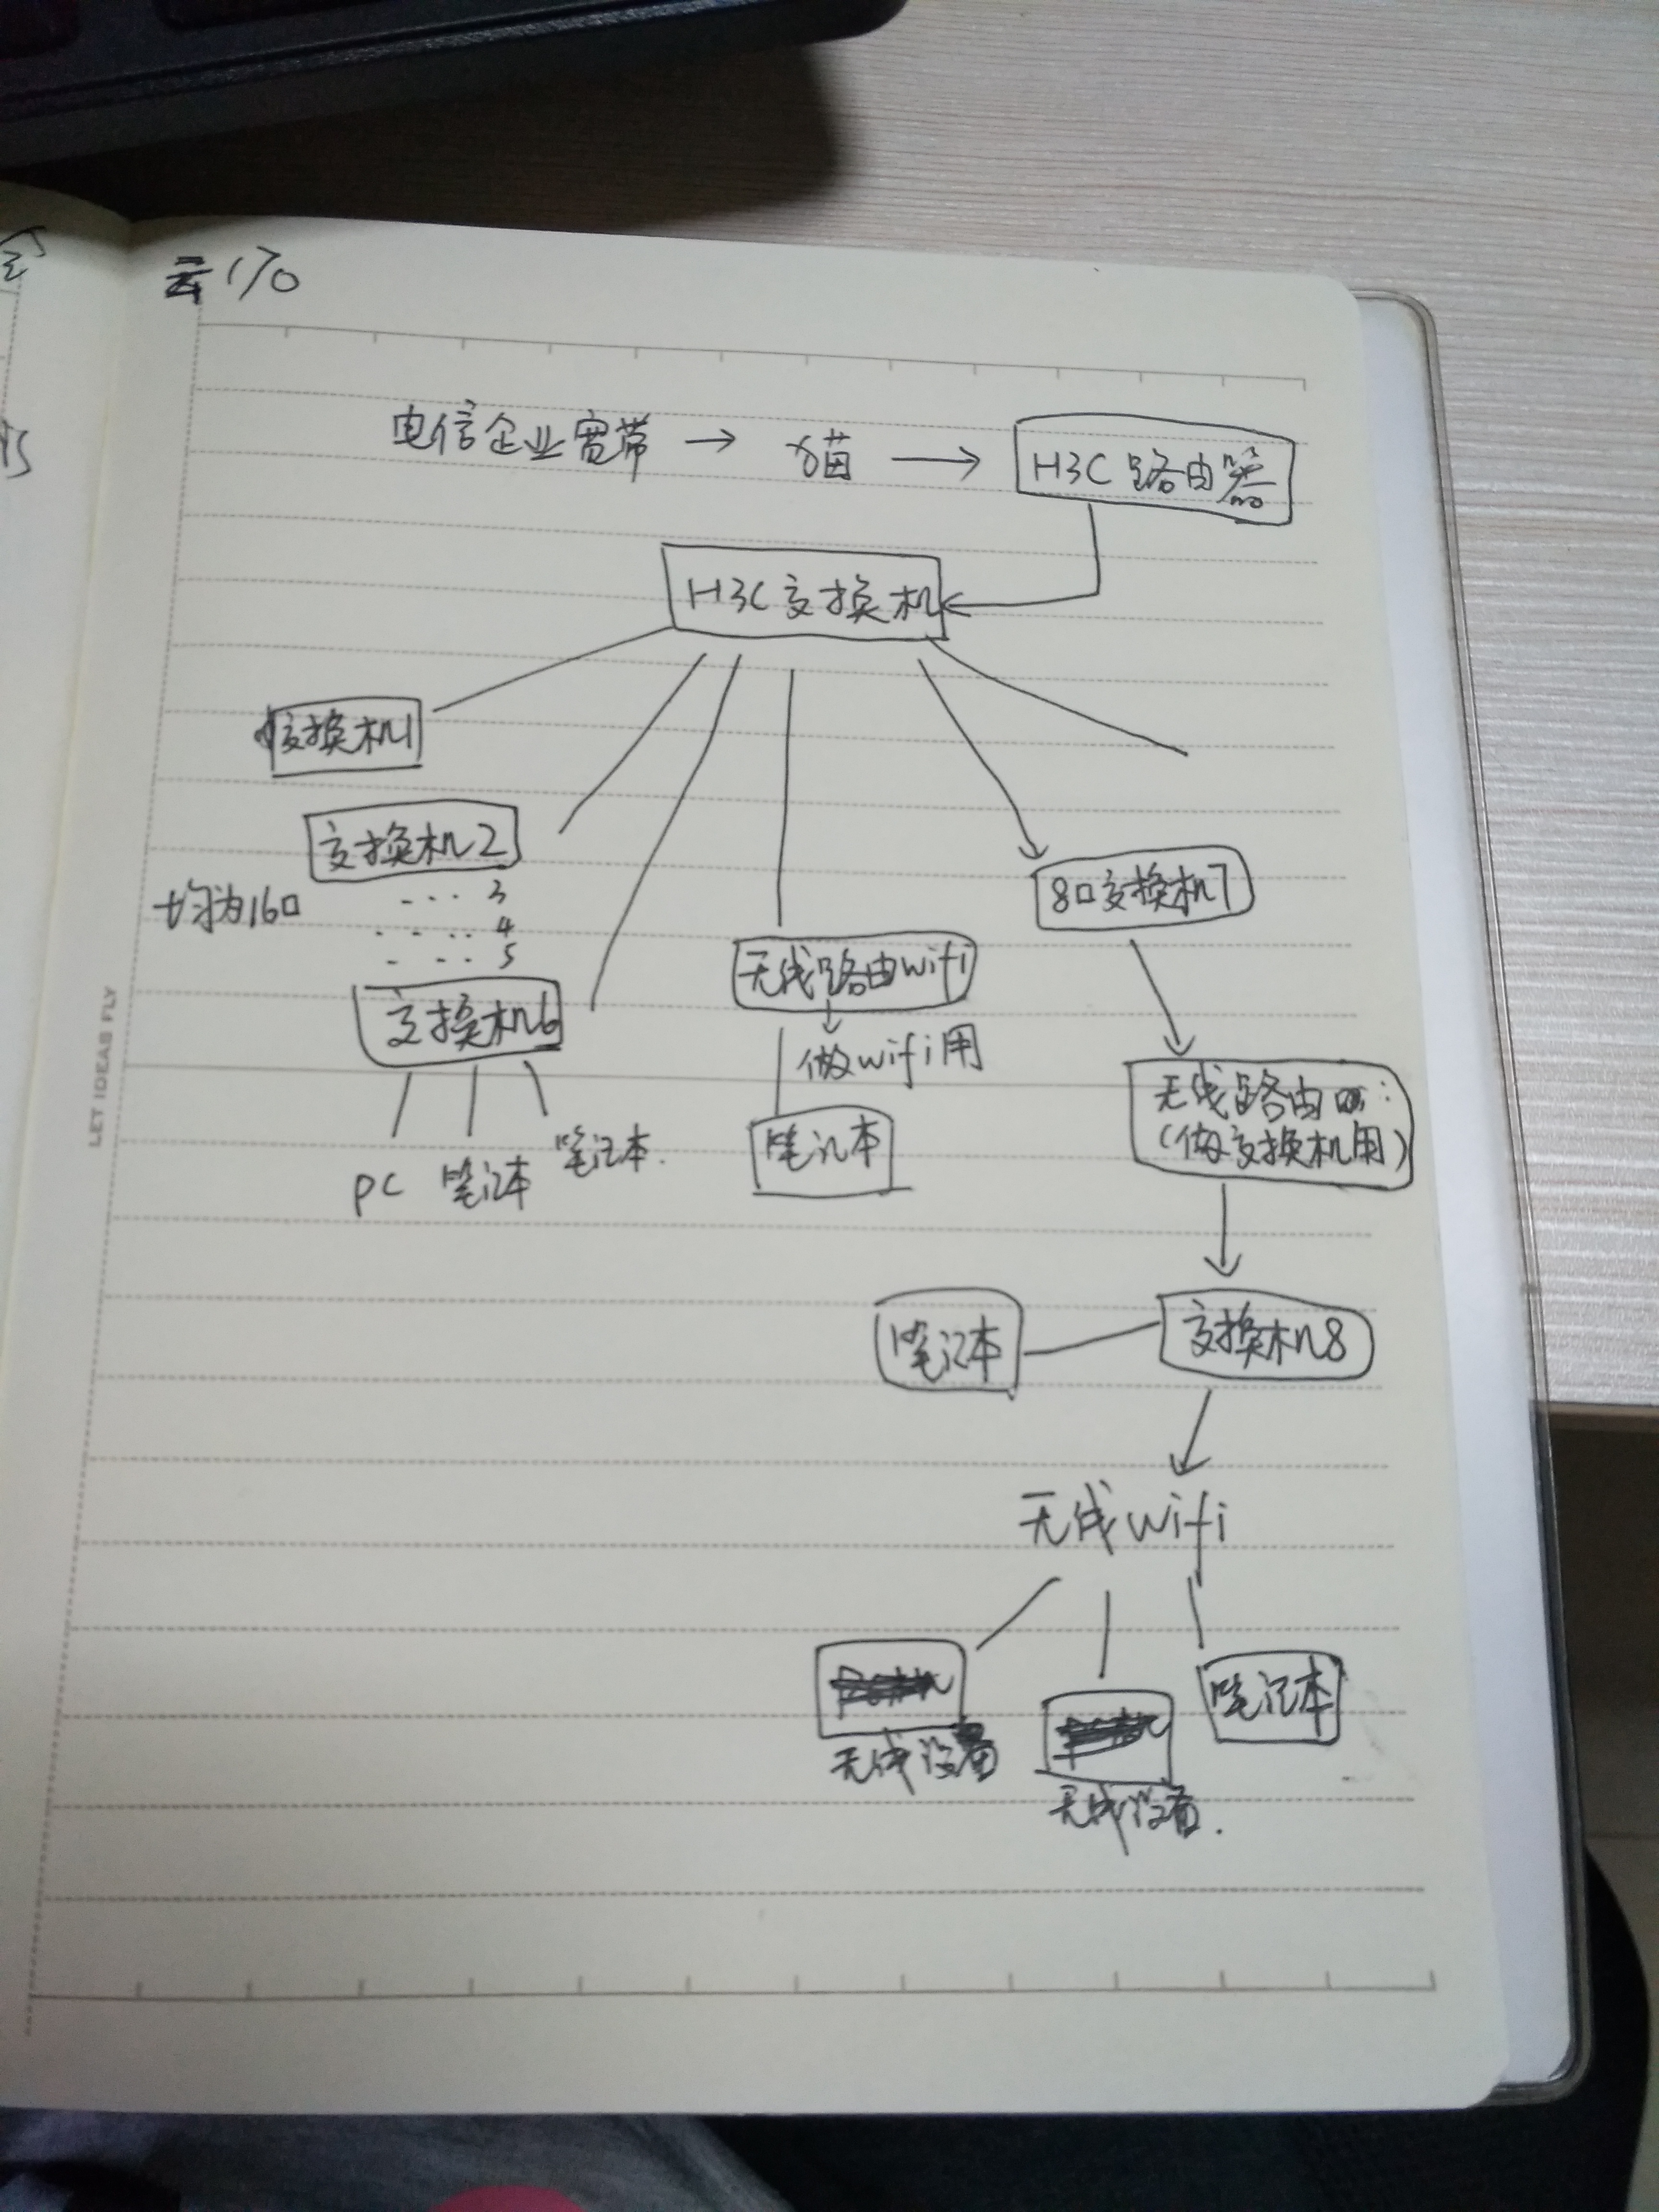 云170
电信企业宽带 → 猫 → H3C路由器
H3C交换机
交换机1
交换机2
均为16口
... 3
.... 4
.... 5
交换机6
PC 笔记本 笔记本.
无线路由wifi
做wifi用
笔记本
8口交换机7
无线路由
(做交换机用)
笔记本
交换机8
无线wifi
无线设备
无线设备.
笔记本
LET IDEAS FLY